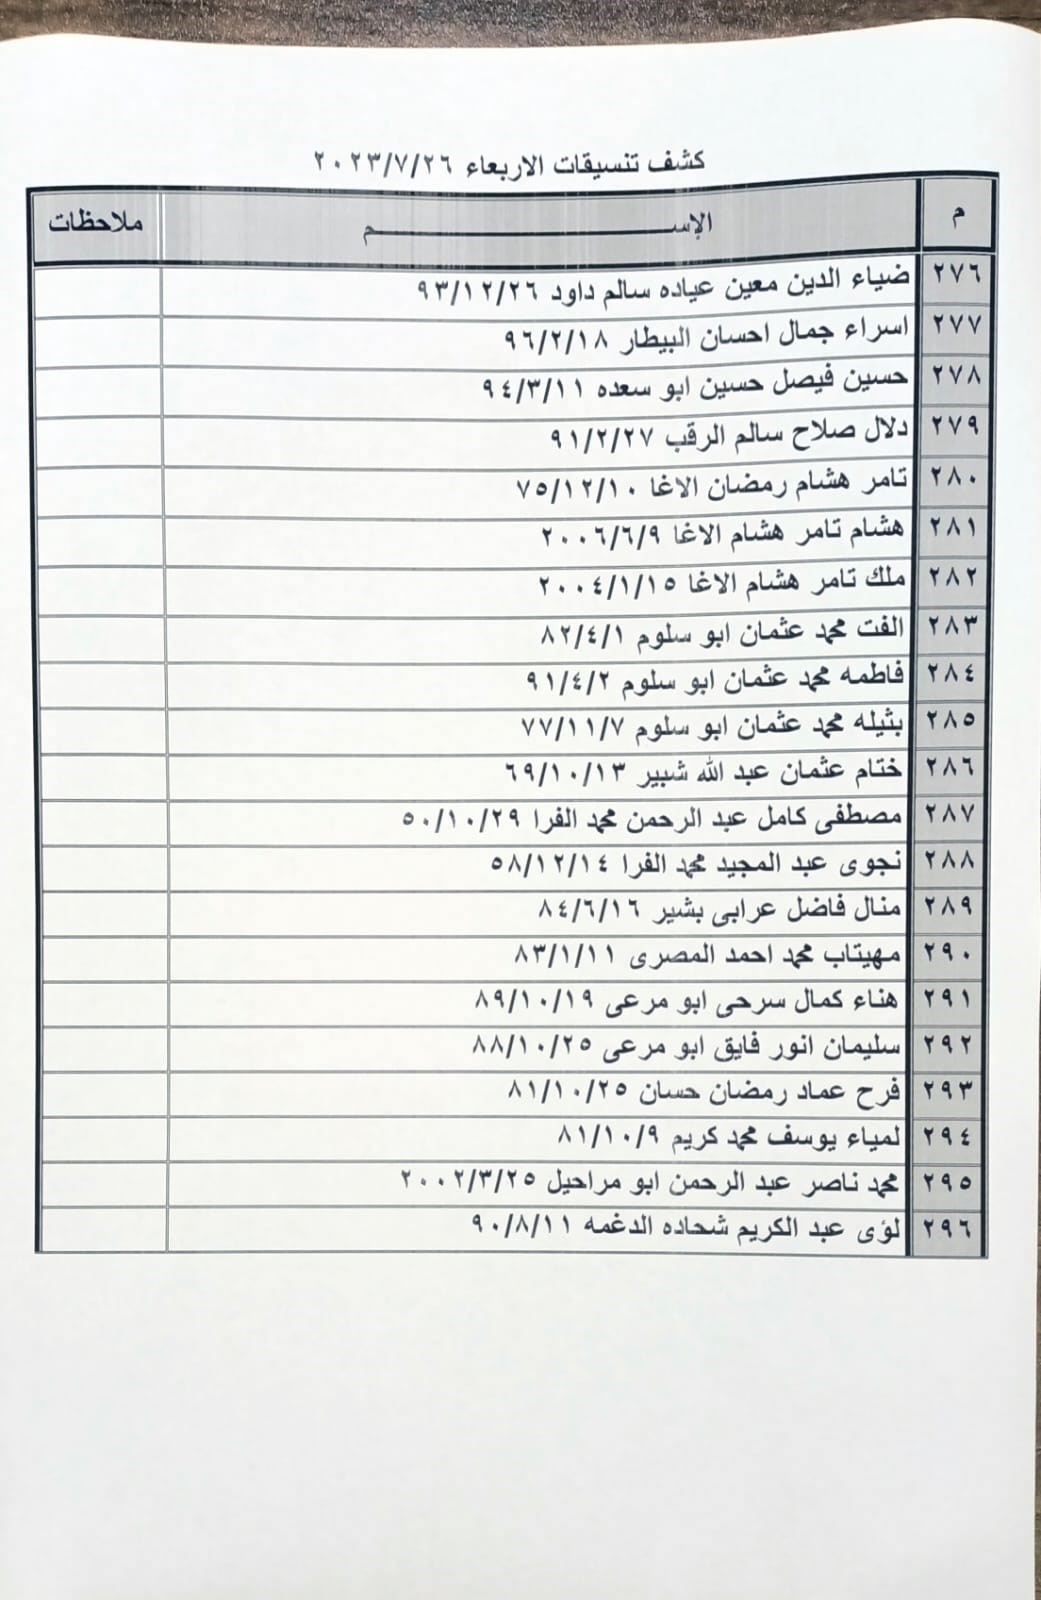 كشف تنسيقات الاربعاء ٢٠٢٣/٧/٢٦
م الإســـم ملاحظات
٢٧٦ ضياء الدين معين عياده سالم داود ٩٣/١٢/٢٦
٢٧٧ اسراء جمال احسان البيطار ٩٦/٢/١٨
٢٧٨ حسين فيصل حسين ابو سعده ٩٤/٣/١١
٢٧٩ دلال صلاح سالم الرقب ٩١/٢/٢٧
٢٨٠ تامر هشام رمضان الاغا ٧٥/١٢/١٠
٢٨١ هشام تامر هشام الاغا ٢٠٠٦/٦/٩
٢٨٢ ملك تامر هشام الاغا ٢٠٠٤/١/١٥
٢٨٣ الفت محمد عثمان ابو سلوم ٨٢/٤/١
٢٨٤ فاطمه محمد عثمان ابو سلوم ٩١/٤/٢
٢٨٥ بثيله محمد عثمان ابو سلوم ٧٧/١١/٧
٢٨٦ ختام عثمان عبد الله شبير ٦٩/١٠/١٣
٢٨٧ مصطفى كامل عبد الرحمن محمد الفرا ٥٠/١٠/٢٩
٢٨٨ نجوى عبد المجيد محمد الفرا ٥٨/١٢/١٤
٢٨٩ منال فاضل عرابى بشير ٨٤/٦/١٦
٢٩٠ مهيتاب محمد احمد المصرى ٨٣/١/١١
٢٩١ هناء كمال سرحى ابو مرعى ٨٩/١٠/١٩
٢٩٢ سليمان انور فايق ابو مرعى ٨٨/١٠/٢٥
٢٩٣ فرح عماد رمضان حسان ٨١/١٠/٢٥
٢٩٤ لمياء يوسف محمد كريم ٨١/١٠/٩
٢٩٥ محمد ناصر عبد الرحمن ابو مراحيل ٢٠٠٢/٣/٢٥
٢٩٦ لؤى عبد الكريم شحاده الدغمه ٩٠/٨/١١